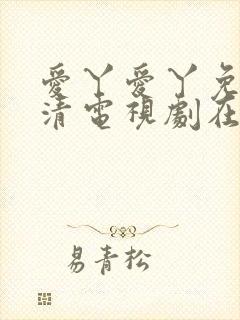 愛丫愛丫免
清電視劇在
易青松